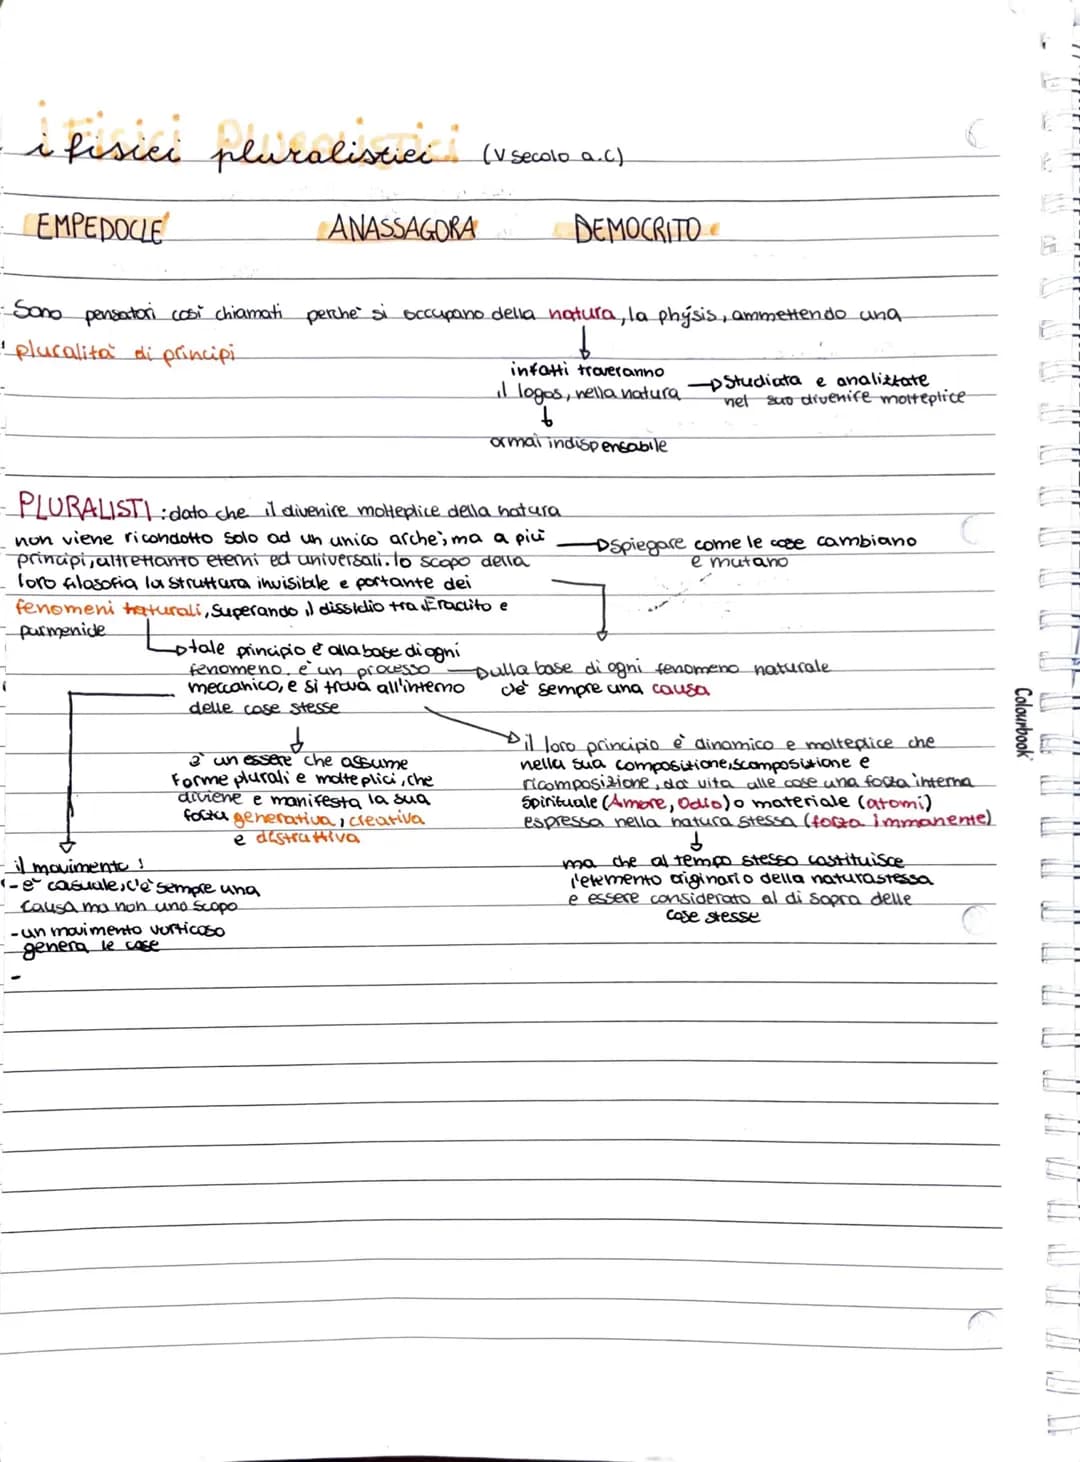 i fisici pluralistici (V secolo a.C)
EMPEDOCLE ANASSAGORA DEMOCRITO
Sono pensatori così chiamati perchè si occupano della natura, la phýsis, ammettendo una
pluralità di principi
infatti troveranno
il logos, nella natura
Studiata e analizzate
nel suo divenire molteplice
ormai indispensabile
PLURALISTI: dato che il divenire molteplice della natura
non viene ricondotto solo ad un unico archè, ma a più
principi, altrettanto eterni ed universali. lo scopo della
loro filosofia la struttura invisibile e portante dei
fenomeni naturali, superando il dissidio tra Eraclito e
parmenide
Spiegare come le cose cambiano
e mutano
tale principio è alla base di ogni
fenomeno, è un processo
meccanico, e si trova all'interno
delle cose stesse
ulla base di ogni fenomeno naturale
c'è sempre una causa
è un essere che assume
forme plurali e molteplici, che
diviene e manifesta la sua
forza generativa, creativa
e distruttiva
il loro principio è dinamico e molteplice che
nella sua composizione, scomposizione e
ricomposizione, da' vita alle cose una forza interna
spirituale (Amore, Odio) o materiale (atomi)
espressa nella natura stessa (forza immanente)
ma che al tempo stesso costituisce
l'elemento originario della natura stessa
e essere considerato al di sopra delle
cose stesse
il movimento:
- è casuale, c'è sempre una
causa ma non uno scopo
- un movimento vorticoso
genera le cose
-
Colourbook